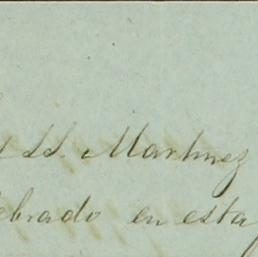 SS. Martinez
ebrado en esta